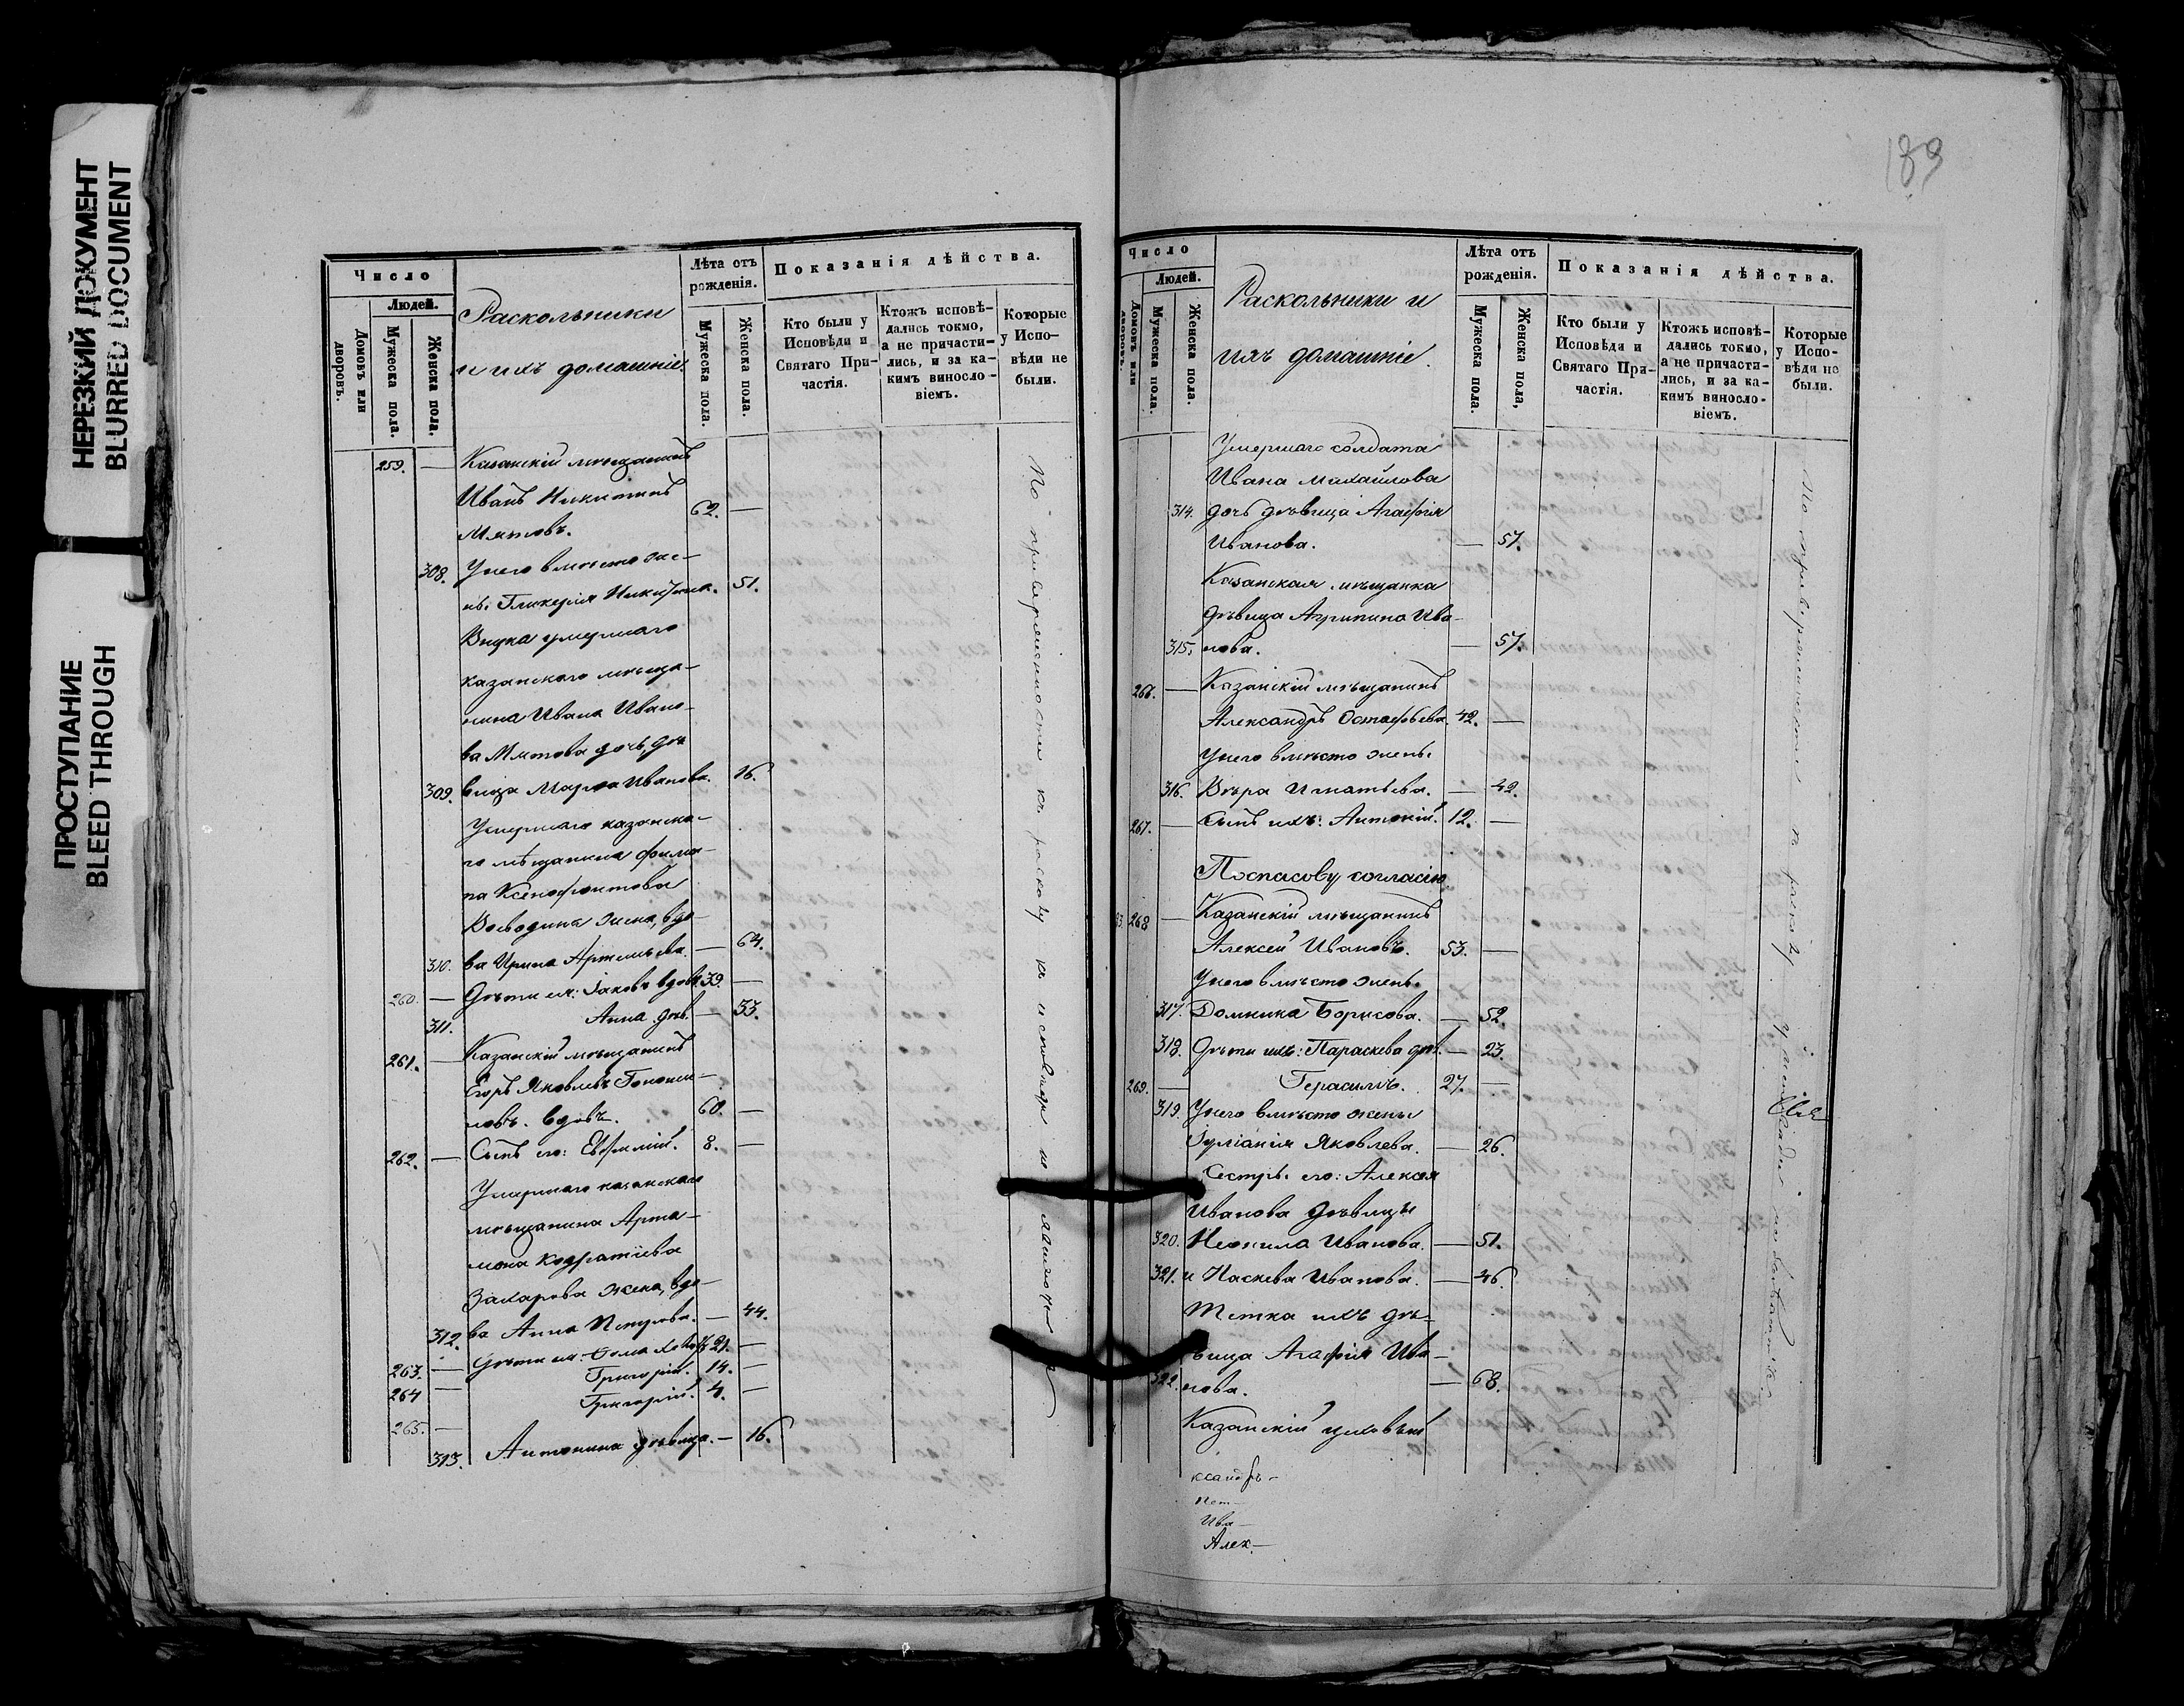 НЕРЕЗКИЙ ДОКУМЕНТ
BLURRED DOCUMENT
ПРОСТУПАНИЕ
BLEED THROUGH
Число
Людей.
Домовъ или дворовъ.
Мужеска пола.
Женска пола.
Раскольники
и ихъ домашніе.
Лѣта отъ рожденія.
Мужеска пола.
Женска пола.
Показанія дѣйства.
Кто были у Исповѣди и Святаго Причастія.
Ктожъ исповѣдались токмо, а не причастились, и за какимъ винословіемъ.
Которые у Исповѣди не были.
259. — Казанскій мѣщанинъ
Иванъ Никитинъ
Мятовъ. 62. —
308. У него вмѣсто же-
ны Гликерія Никитина. 51.
Внука умершаго
казанскаго мѣща-
нина Ивана Ивано-
ва Мятова дочь, дѣ
309. вица Марѳа Иванова. 16.
Умершаго казанска-
го мѣщанина Фили-
па Ксенофонтова
жена, вдо-
310. ва Ирина Артемьева. — 64.
260. — Дѣти ея: Іаковъ вдовъ 39. —
311. Анна дѣв. — 33.
261. — Казанскій мѣщанинъ
Егоръ Яковлевъ
вдовъ. 60. —
262. — Сынъ его: Евфимій. 8. —
Умершаго казанскаго
мѣщанина Арта-
мона Кодратіева
Захарова жена, вдо-
312. ва Анна Петрова. — 44.
263. — Дѣти ея: Ѳома 21. —
264 — Григорій. 14. —
265. — Григорій. 4. —
313. Антонина дѣвица. — 16.
По приверженности къ расколу къ исповѣди не
189
Число
Людей.
Домовъ или дворовъ.
Мужеска пола.
Женска пола.
Раскольники и
ихъ домашніе.
Лѣта отъ рожденія.
Мужеска пола.
Женска пола,
Показанія дѣйства.
Кто были у Исповѣди и Святаго Причастія.
Ктожъ исповѣдались токмо, а не причастились, и за какимъ винословіемъ.
Которые у Исповѣди не были.
Умершаго солдата
Ивана Михайлова
314. дочь дѣвица Агафія
Иванова. — 57.
Казанская мѣщанка
дѣвица Агрипина Ива-
315. нова. — 57.
266. — Казанскій мѣщанинъ
Александръ Остафьевъ. 42. —
У него вмѣсто жены
316. Вѣра Игнатьева. — 42.
267. — Сынъ ихъ: Антоній. 12. —
По спасову согласію
268 — Казанскій мѣщанинъ
Алексей Ивановъ. 53. —
У него вмѣсто жены
317. Домника Борисова. — 52.
318. Дѣти ихъ: Параскева дѣв. — 23.
269. — Герасимъ. 27. —
319. У него вмѣсто жены
Іуліанія Яковлева. — 26.
Сестры его: Алексея
Иванова дѣвицы
320. Неонила Иванова. — 51.
321. и Иванова. — 46.
Тетка ихъ дѣ-
вица Агафія Ива-
322. нова. — 68.
Казанскій цеховый
ксандръ —
Пет —
Ива —
Алек —
По приверженности къ расколу